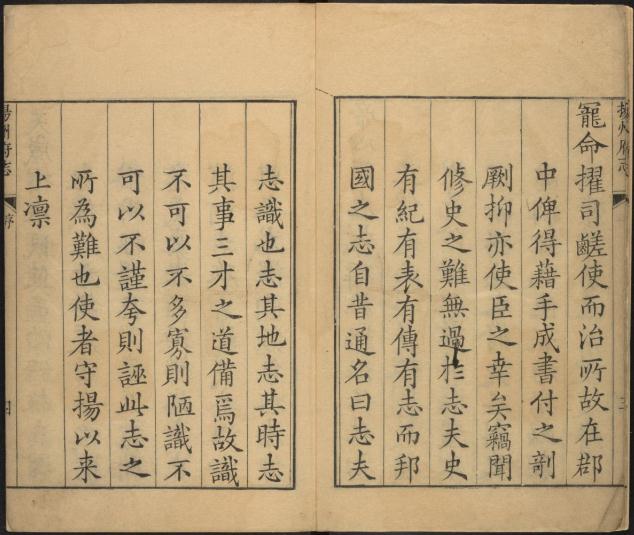 寵命擢司鹺使而治所故在郡
中俾得藉手成書付之剞
劂抑亦使臣之幸矣竊聞
修史之難無過於志夫史
有紀有表有傳有志而邦
國之志自昔通名曰志夫
揚州府志
三
志識也志其地志其時志
其事三才之道備焉故識
不可以不多寡則陋識不
可以不謹夸則誣此志之
所為難也使者守揚以来
上凛
揚州府志
序
四